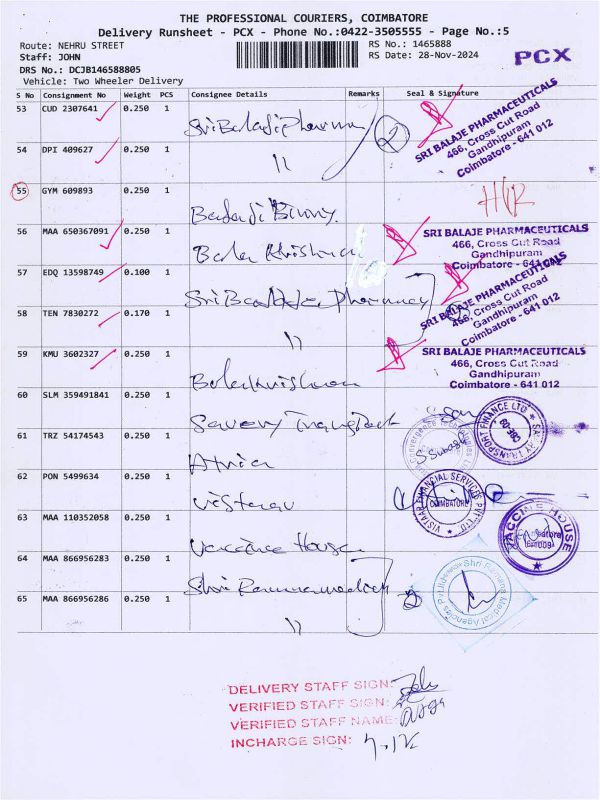 THE PROFESSIONAL COURIERS, COIMBATORE
Delivery Runsheet - PCX - Phone No.:0422-3505555 - Page No.:5
Route: NEHRU STREET
RS No.: 1465888
Staff: JOHN
RS Date: 28-Nov-2024
PCX
DRS No.: DCJB146588805
Vehicle: Two Wheeler Delivery
S No Consignment No Weight PCS Consignee Details Remarks Seal & Signature
53 CUD 2307641 0.250 1 Sri Balaji Pharmacy 2
SRI BALAJE PHARMACEUTICALS
466, Cross Cut Road
Gandhipuram
Coimbatore - 641 012
54 DPI 409627 0.250 1 "
55 GYM 609893 0.250 1
56 MAA 650367091 0.250 1 Bala Krishnan
SRI BALAJE PHARMACEUTICALS
466, Cross Cut Road
Gandhipuram
Coimbatore - 641 012
57 EDQ 13598749 0.100 1 Pharmacy
SRI BALAJE PHARMACEUTICALS
466, Cross Cut Road
Gandhipuram
Coimbatore - 641 012
58 TEN 7830272 0.170 1 "
59 KMU 3602327 0.250 1 Balakrishnan
SRI BALAJE PHARMACEUTICALS
466, Cross Cut Road
Gandhipuram
Coimbatore - 641 012
60 SLM 359491841 0.250 1 Transport
TRANSPORT FINANCE LTD
CBE-09
61 TRZ 54174543 0.250 1
62 PON 5499634 0.250 1
VISTAAR FINANCIAL SERVICES PVT LTD
COIMBATORE
63 MAA 110352058 0.250 1 Vaccine House
VACCINE HOUSE
64 MAA 866956283 0.250 1 Shri 2
65 MAA 866956286 0.250 1 "
DELIVERY STAFF SIGN:
VERIFIED STAFF SIGN:
VERIFIED STAFF NAME:
INCHARGE SIGN: